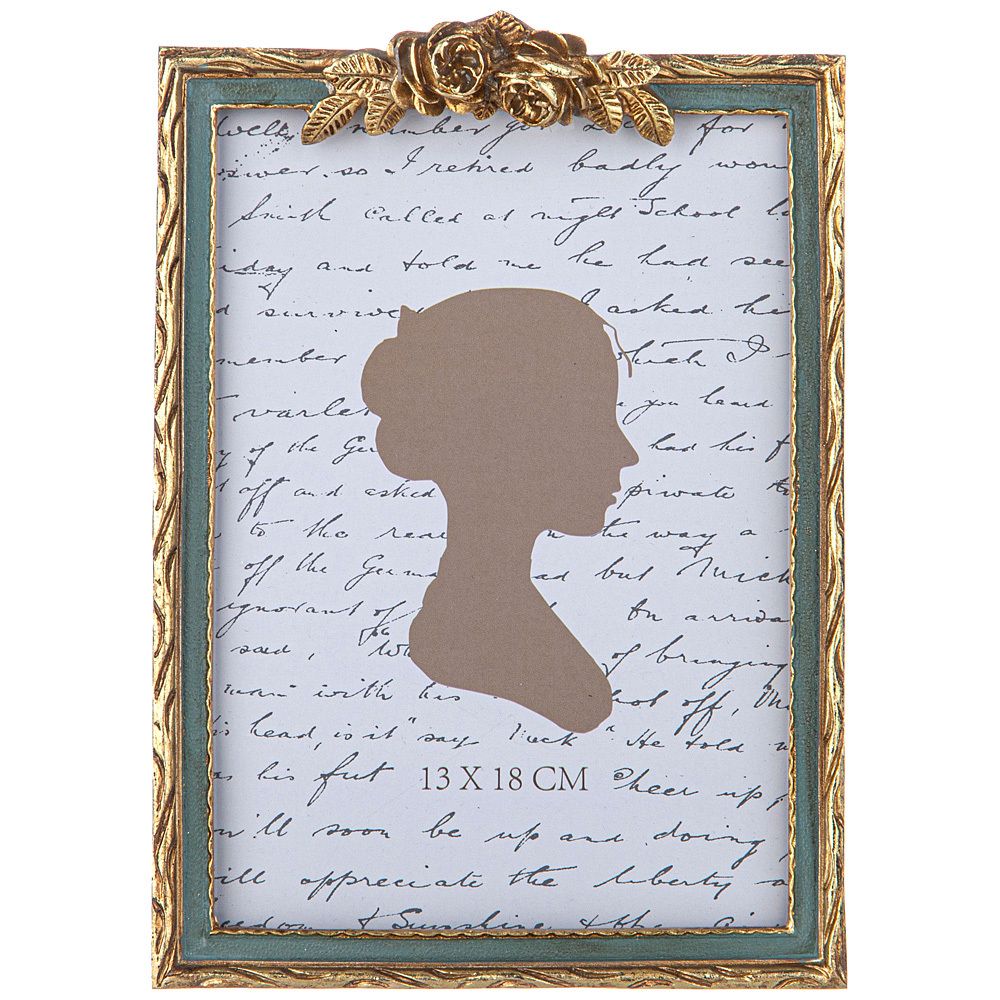 well number for
so I retired badly
Smith called at night School
and told me he had see
d asked he
member which I
varlet you heard
of the Ge had his f
off and asked private
to the rea the way a
off the Germa ad but Mick
ignorant of On arriva
said, W of bringing
man with his off,
his head, is it" says Mick". He told
as his feet Cheer up
13 X 18 CM
'll soon be up and doing
ill appreciate the liberty
eedom & Sunshine & the